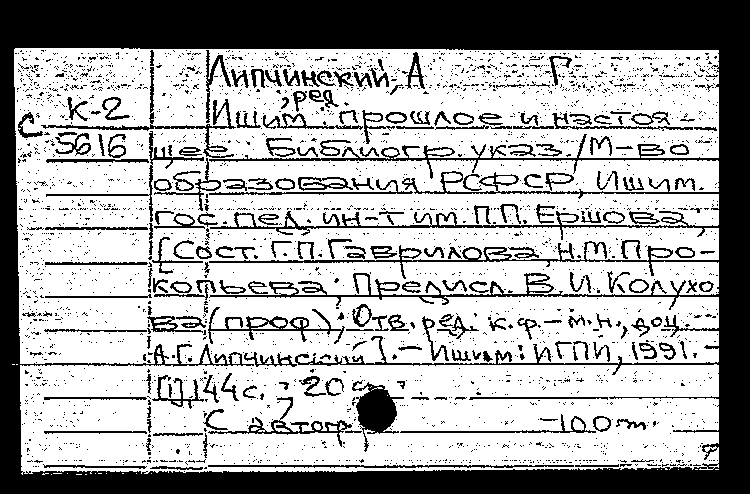 Липчинский, А Г
, ред
К-2 Ишим: прошлое и настоя-
С 5616 щее: Библиогр. указ./М-во
образования РСФСР, Ишим.
гос. пед. ин-т им. П.П. Ершова;
[Сост. Г.П. Гаврилова, Н.М. Про-
копьева; Предисл. В.И. Колухо
ва (проф); Отв. ред.: к.ф.-м.н., доц.
А.Г. Липчинский]. - Ишим: ИГПИ, 1991. -
[1], 144 с. ; 20
С автогр. -100 т.